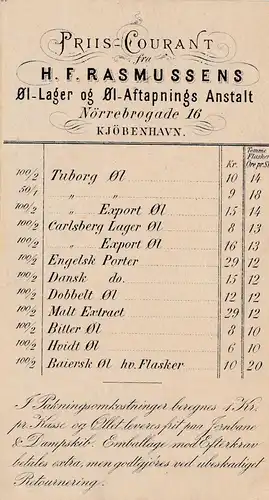 PRIIS-COURANT
fra
H. F. RASMUSSENS
Øl-Lager og Øl-Aftapnings Anstalt
Nörrebrogade 16
KJÖBENHAVN.
Kr. Tomme Flasker Øre pr. St.
100/2 Tuborg Øl 10 14
50/1 „ „ 9 18
100/2 „ Export Øl 15 14
100/2 Carlsberg Lager Øl 8 13
100/2 „ Export Øl 16 13
100/2 Engelsk Porter 29 12
100/2 Dansk do. 15 12
100/2 Dobbelt Øl 12 12
100/2 Malt Extract 29 12
100/2 Bitter Øl 8 10
100/2 Hvidt Øl 6 10
100/2 Baiersk Øl hv. Flasker 10 20
I Pakningsomkostninger beregnes 1 Kr.
pr. Kasse og Øllet leveres frit paa Jernbane
& Dampskib. Emballage mod Efterkrav
betales extra, men godtgjöres ved ubeskadiget
Retournering.